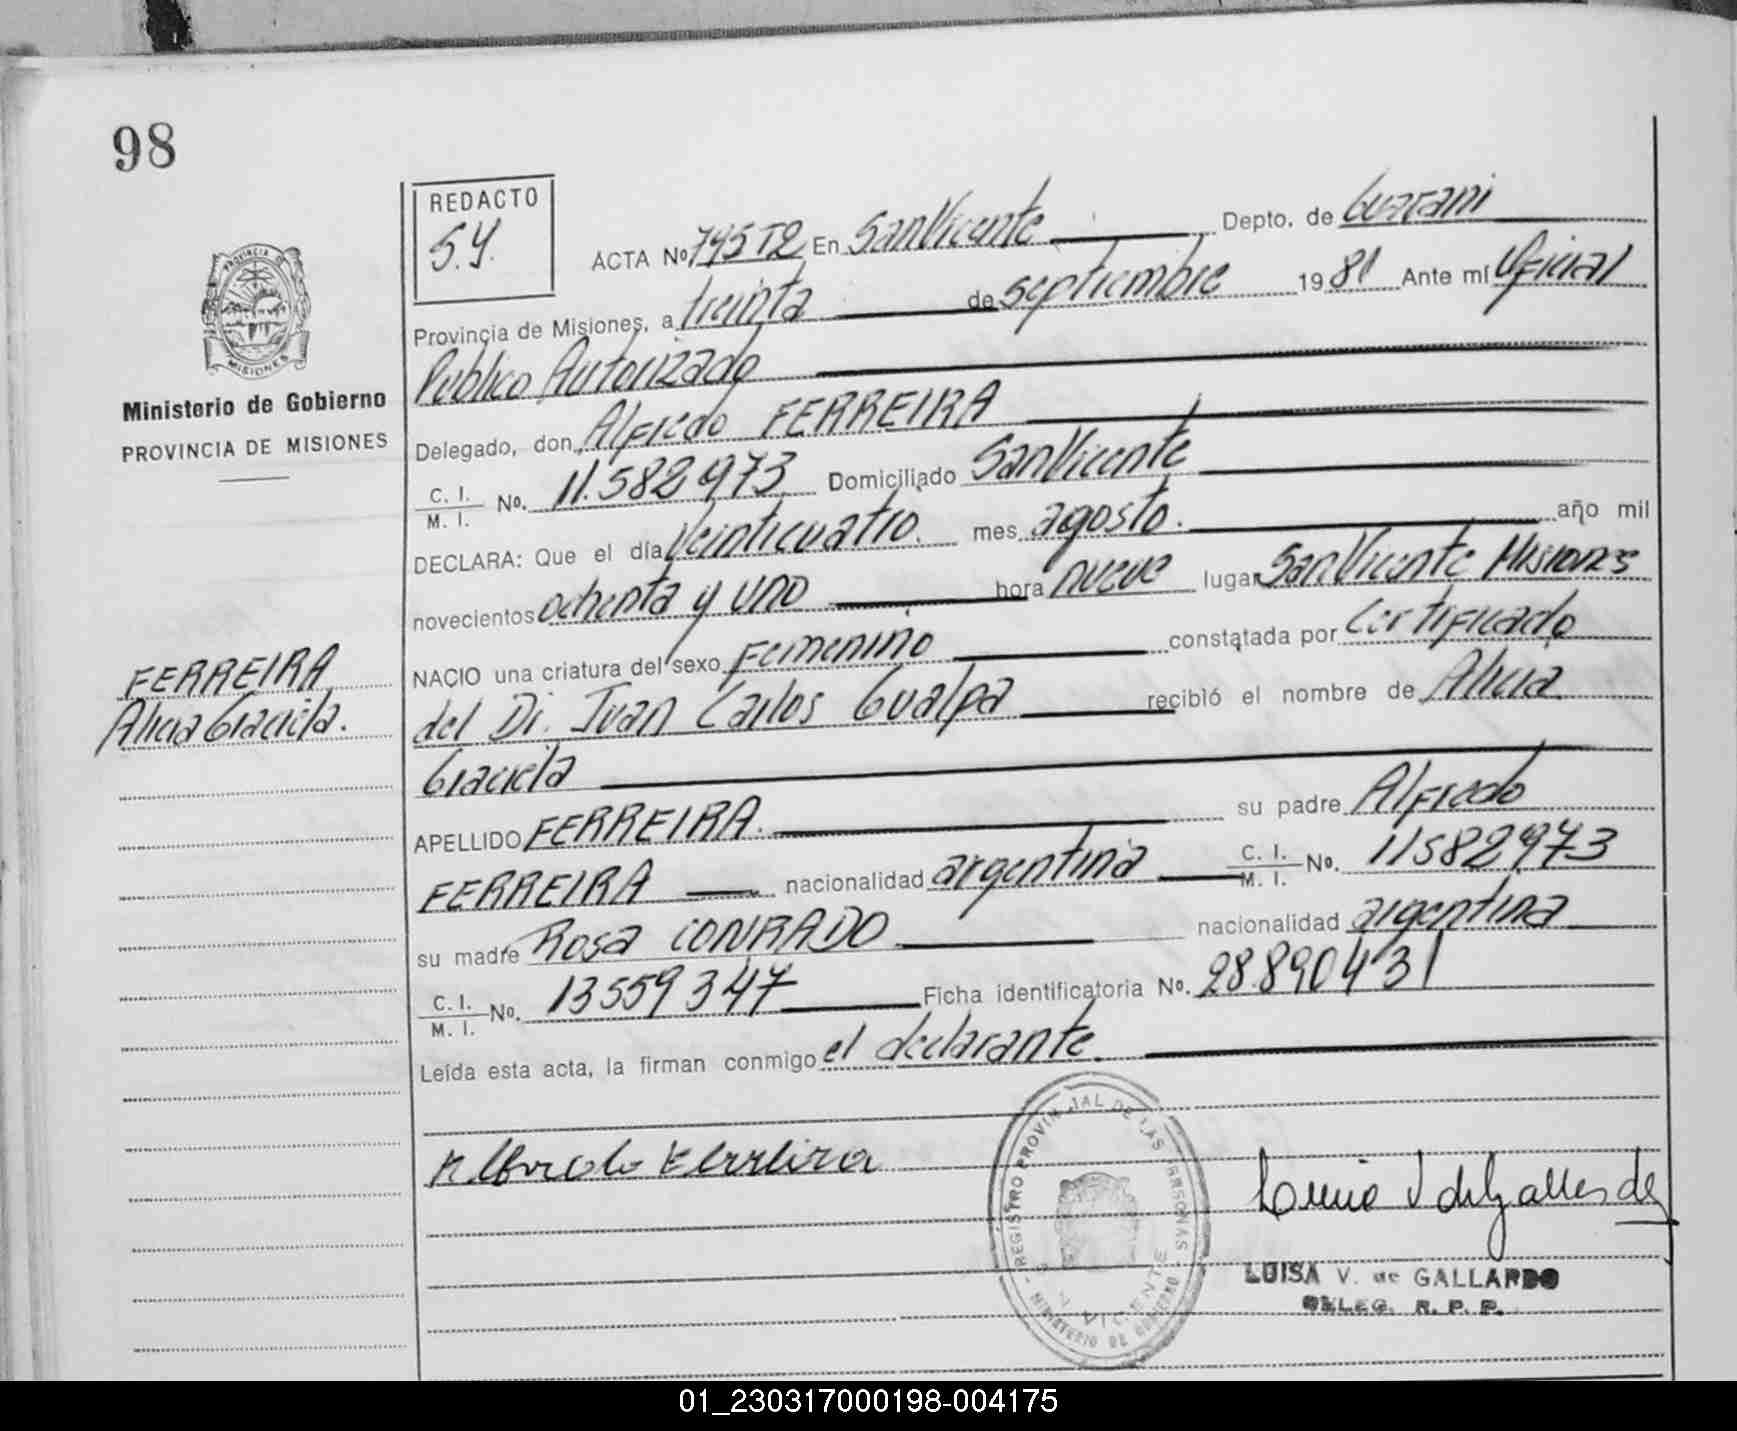 98
REDACTO
S.Y.
ACTA Nº 795 T2 En San Vicente Depto. de Guarani
Provincia de Misiones, a treinta de septiembre 1981 Ante mí Oficial
Publico Autorizado
Delegado, don Alfredo FERREIRA
C. I. / M. I. Nº. 11.582973 Domiciliado San Vicente
DECLARA: Que el día Veinticuatro. mes agosto. año mil
novecientos ochenta y uno hora nueve lugar San Vicente Misiones
NACIO una criatura del sexo Femenino constatada por Certificado
del Dr. Juan Carlos Gualpa recibió el nombre de Alicia
Graciela
APELLIDO FERREIRA. su padre Alfredo
FERREIRA nacionalidad argentina C. I. / M. I. Nº. 11582973
su madre Rosa CONRADO nacionalidad argentina
C. I. / M. I. Nº. 13559347 Ficha identificatoria Nº. 28.890431
Leída esta acta, la firman conmigo el declarante.
PROVINCIA DE
MISIONES
Ministerio de Gobierno
PROVINCIA DE MISIONES
FERREIRA,
Alicia Graciela.
Alfredo Ferreira
REGISTRO PROVINCIAL DE LAS PERSONAS
MINISTERIO DE GOBIERNO
S. VICENTE
LUISA V. de GALLARDO
DELEG. R. P. P.
01_230317000198-004175